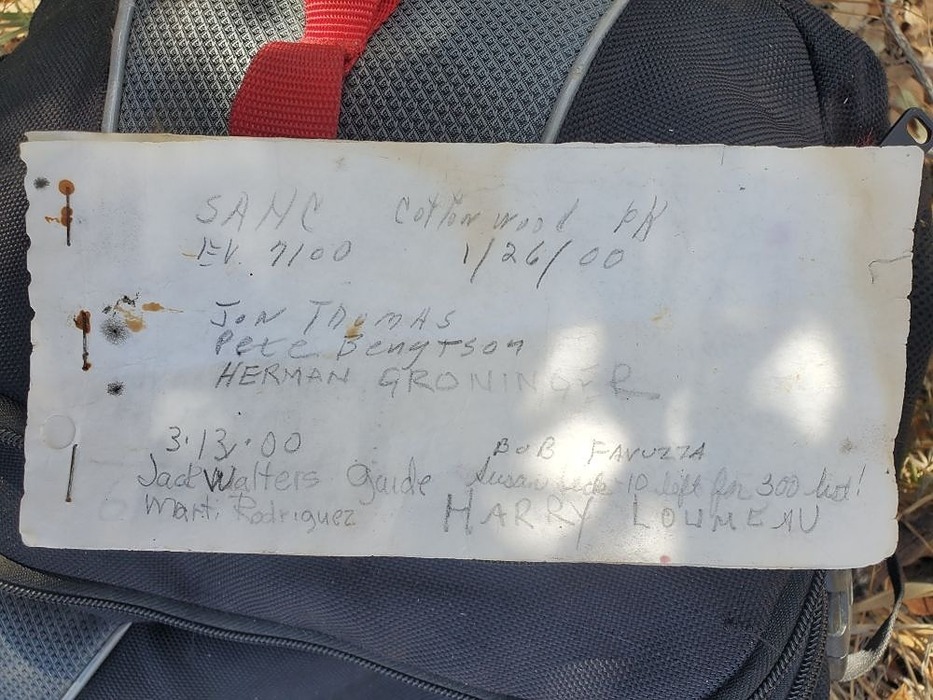 SAHC Cottonwood PK
EV. 7100 1/26/00
JON THOMAS
Pete Bengtson
HERMAN GRONINGER
3·13·00 BOB FAVUZZA
Jack Walters Guide Susan 10 left for 300 list!
Marti Rodriguez HARRY LOUMEAU